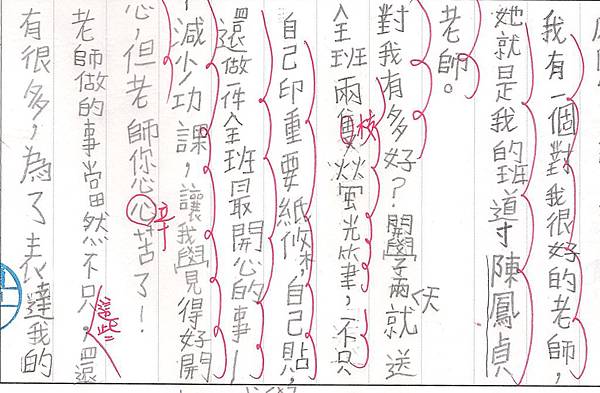 我有一個對我很好的老師，
她就是我的班導陳鳳貞
老師。
對我有多好？開學兩天就送
全班兩隻螢光筆，不只
自己印重要紙條，自己貼，
還做一件全班最開心的事—
減少功課，讓我覺得好開
心，但老師你心心苦了！
辛
老師做的事當然不只。還
這些
有很多，為了表達我的